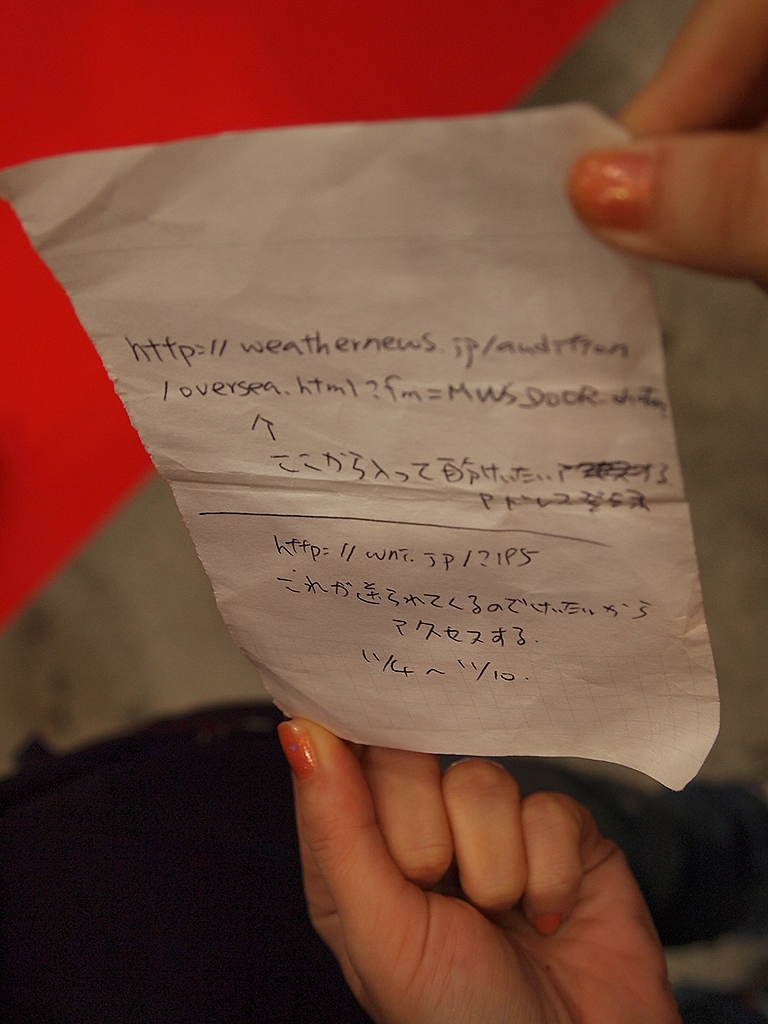 http://weathernews.jp/audition
/oversea.html?fm=MWS_DOOR
↑
ここから入って けいたい
アドレス
http://wni.jp/?IPS
これが送られてくるのでけいたいから
アクセスする.
11/4～11/10.